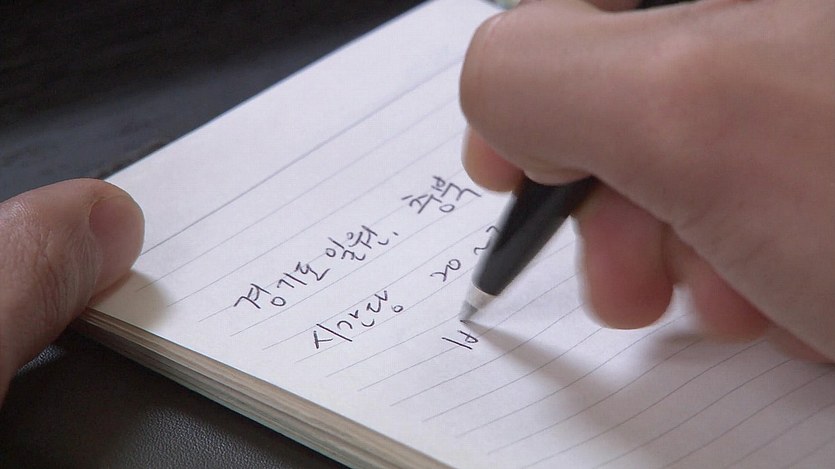 경기도 일원, 충북
시간당 20